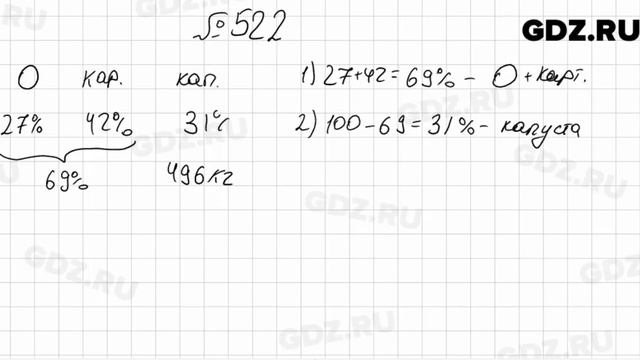 №522
GDZ.RU
О кар. кап.
27% 42% 31%
69% 496кг
1) 27+42=69% - О + карт.
2) 100-69=31% - капуста
GDZ.RU
GDZ.RU
GDZ.RU
GDZ.RU
GDZ.RU
GDZ.RU
GDZ.RU